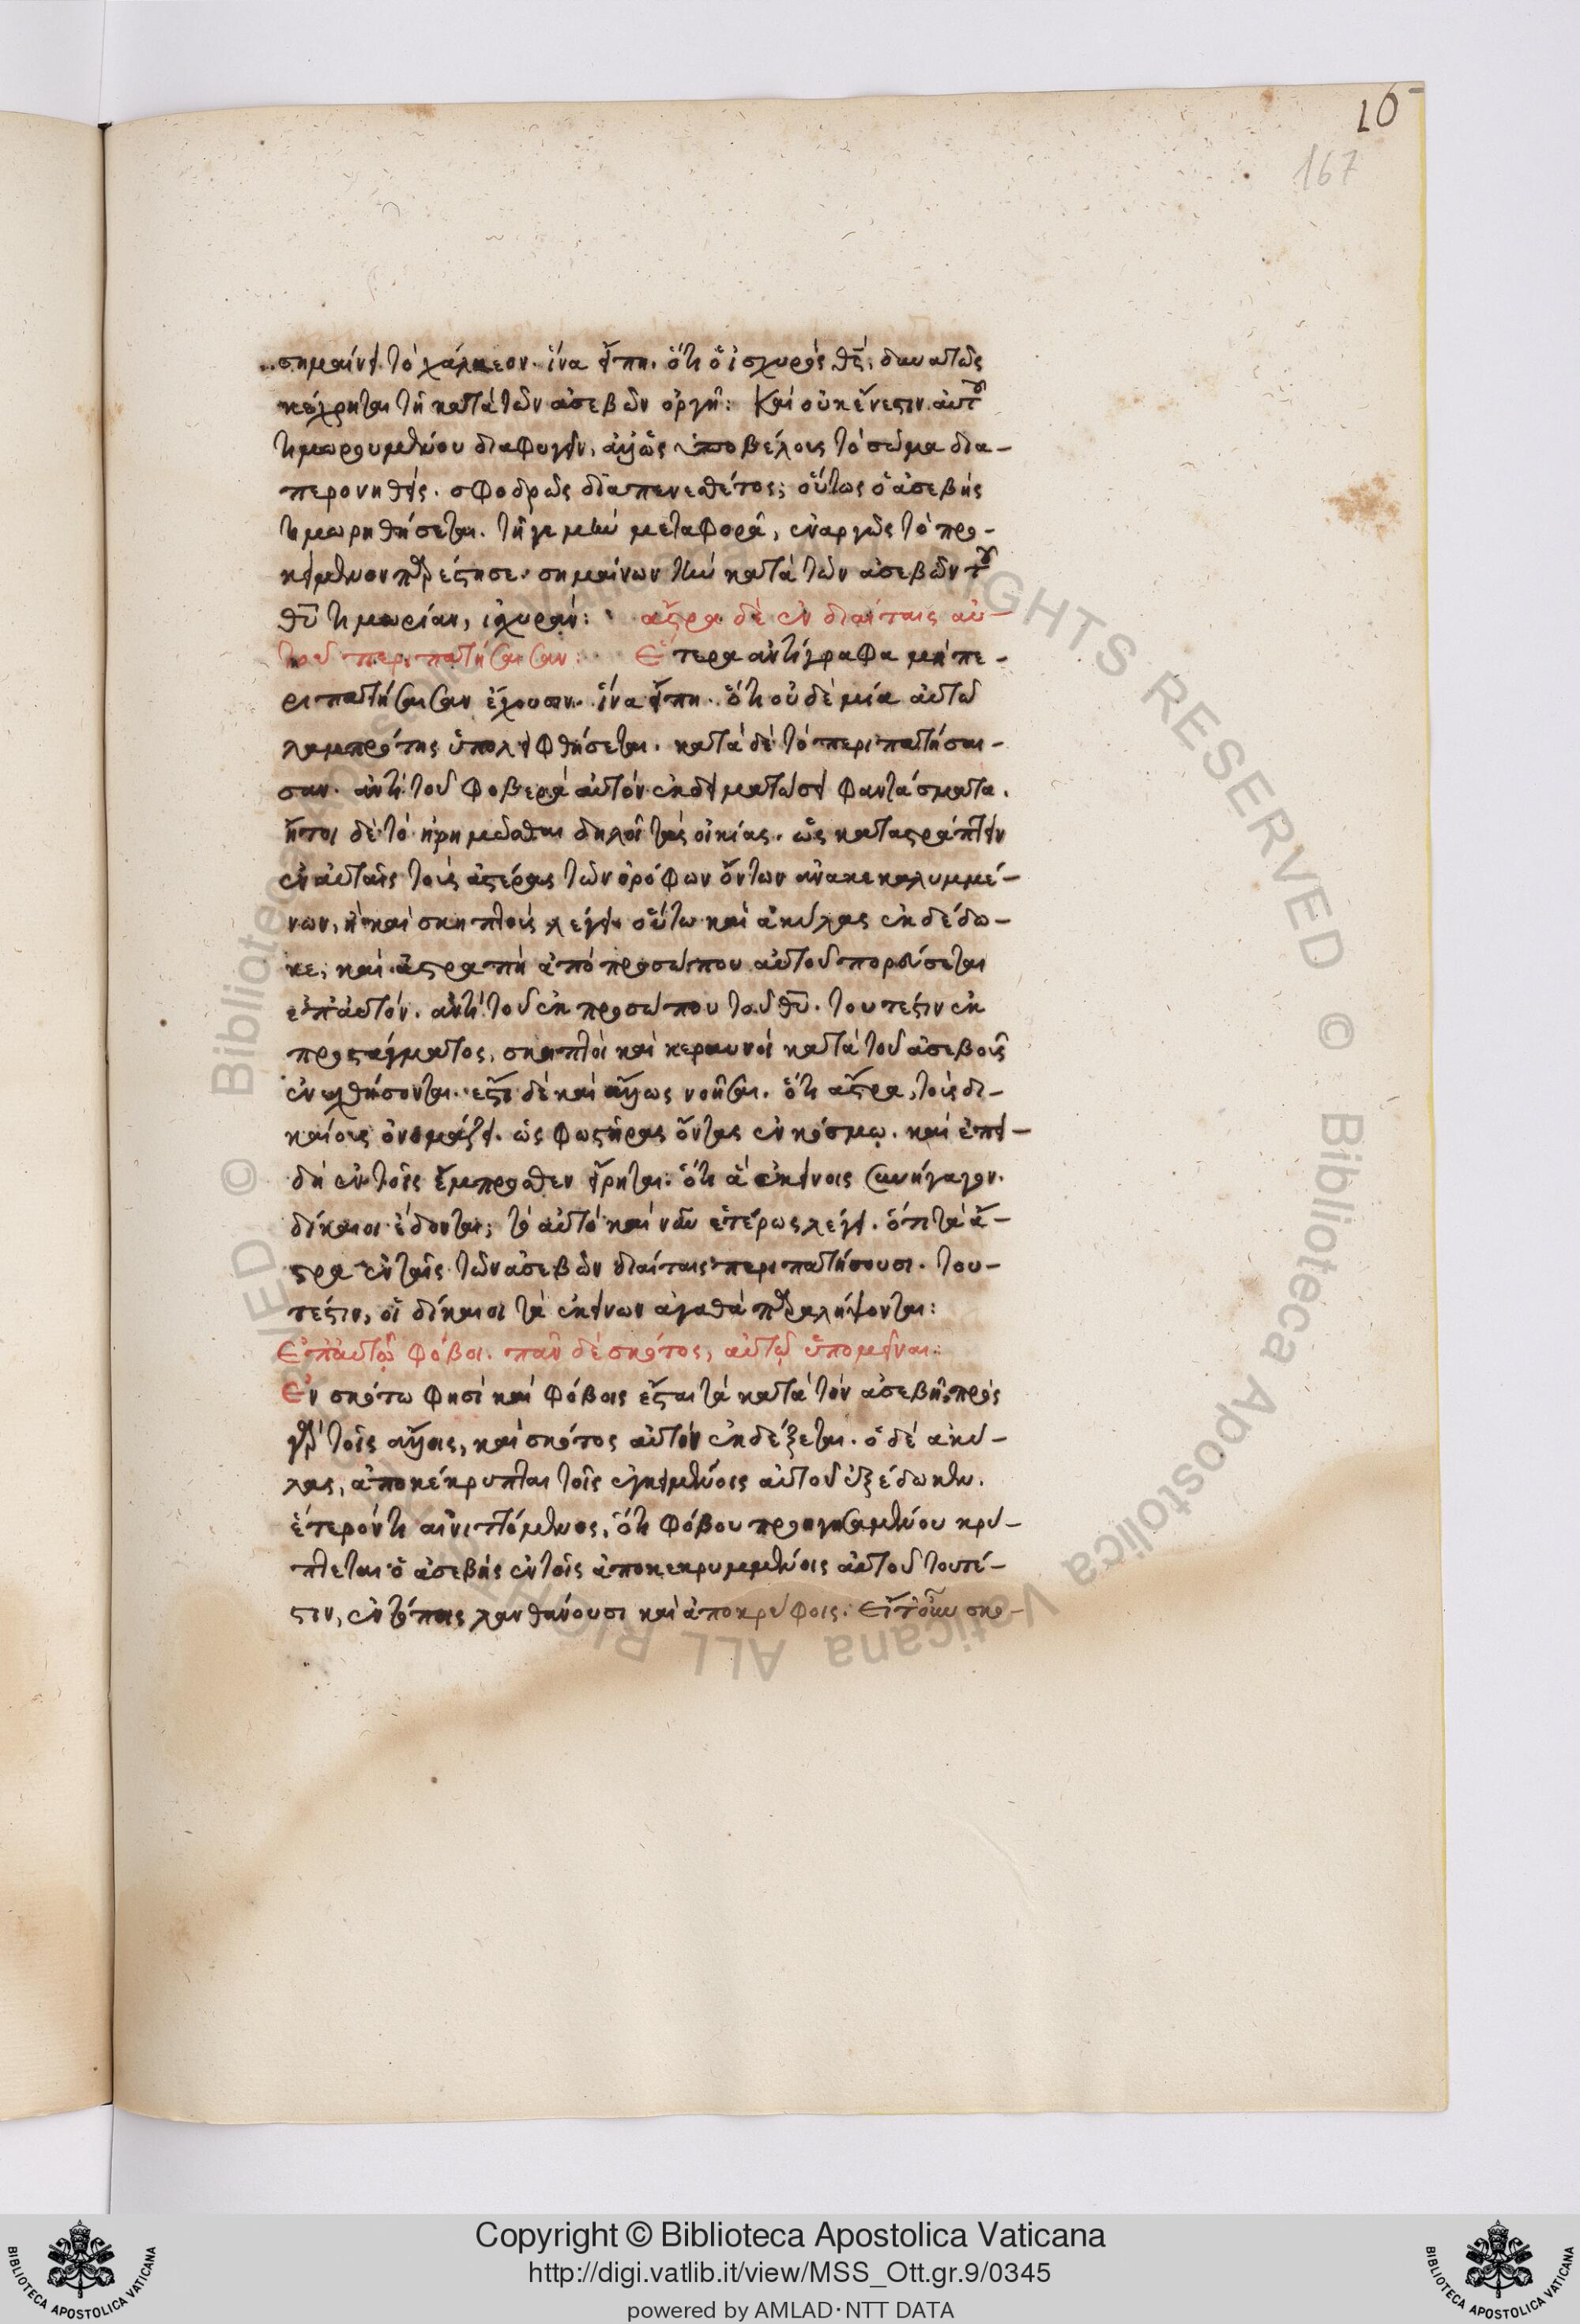 16
167
σημαίνει τὸ χάλκεον. ἵνα εἴπη. ὅτι ὁ ἰσχυρὸς θς, δυνατῶς
κέχρηται τῆ κατὰ τῶν ἀσεβῶν ὀργῆ: Καὶ οὐκ ἔνεστιν αὐτοῦ
τιμωρουμένου διαφυγεῖν. ἀλλ' ὡς ὑπὸ βέλους τὸ σῶμα δια-
περονηθεὶς. σφοδρῶς διαπενεθέντος; οὕτως ὁ ἀσεβὴς
τιμωρηθήσεται. τῆ γε μὴν μεταφορᾶ, ἐναργῶς τὸ προ-
κείμενον παρέστησε. σημαίνων τὴν κατὰ τῶν ἀσεβῶν τοῦ
θυ τιμωρίαν, ἰσχυράν: ἄστρα δὲ ἐν διαίταις αὐ-
τοῦ περιπατήσαισαν: Ἕτερα ἀντίγραφα μὴ πε-
ριπατήσαισαν ἔχουσιν. ἵνα εἴπη. ὅτι οὐδὲ μία αὐτῶ
λαμπρότης ὑπολειφθήσεται. κατὰ δὲ τὸ περιπατήσαι-
σαν. ἀντὶ τοῦ φοβερὰ αὐτὸν ἐκδειματώσει φαντάσματα.
ἤτοι δὲ τὸ ἠρημῶσθαι δηλοῖ τὰς οἰκίας. ὡς καταστράπτειν
ἐν αὐταῖς τοὺς ἀστέρας τῶν ὀρόφων ὄντων ἀνακεκαλυμμέ-
νων, ἢ καὶ σκηπτοὺς λέγει. οὕτω καὶ ἀκύλας ἐκδέδω-
κε, καὶ ἀστραπὴ ἀπὸ προσώπου αὐτοῦ πορεύσεται
ἐπ' αὐτόν. ἀντὶ τοῦ ἐκ προσώπου τοῦ θυ. τουτέστιν ἐκ
προστάγματος, σκηπτοὶ καὶ κεραυνοὶ κατὰ τοῦ ἀσεβοῦς
ἐνεχθήσονται. ἔστι δὲ καὶ ἄλλως νοῆσαι. ὅτι ἄστρα, τοὺς δι-
καίους ὀνομάζει. ὡς φωστῆρας ὄντας ἐν κόσμῳ. καὶ ἐπει-
δὴ ἐν τοῖς ἔμπροσθεν εἴρηται: ὅτι ἃ ἐκεῖνοις συνήγαγον.
δίκαιοι ἔδονται; τὸ αὐτὸ καὶ νῦν ἑτέρως λέγει. ὅτι τὰ ἄ-
στρα ἐν ταῖς τῶν ἀσεβῶν διαίταις περιπατήσουσι. του-
τέστιν, οἱ δίκαιοι τὰ ἐκείνων ἀγαθὰ παραλήψονται:
Ἐπ' αὐτῷ φόβοι. πᾶν δὲ σκότος, αὐτῷ ὑπομεῖναι:
Ἐν σκότω φησὶ καὶ φόβοις ἔσται τὰ κατὰ τὸν ἀσεβῆ, πρὸς
γὰρ τοῖς ἄλλοις, καὶ σκότος αὐτὸν ἐκδέξεται. ὁ δὲ ἀκύ-
λας, ἀποκέκρυπται τοῖς ἐγκειμένοις αὐτοῦ ἐξέδωκεν.
ἕτερόν τι αἰνιττόμενος, ὅτι φόβου προηγησαμένου κρύ-
πτεται ὁ ἀσεβὴς ἐν τοῖς ἀποκεκρυμμένοις αὐτοῦ τουτέ-
στιν, ἐν τόποις λανθάνουσι καὶ ἀποκρύφοις. Εἶτ' οὖν σκο-
Copyright © Biblioteca Apostolica Vaticana
http://digi.vatlib.it/view/MSS_Ott.gr.9/0345
powered by AMLAD·NTT DATA